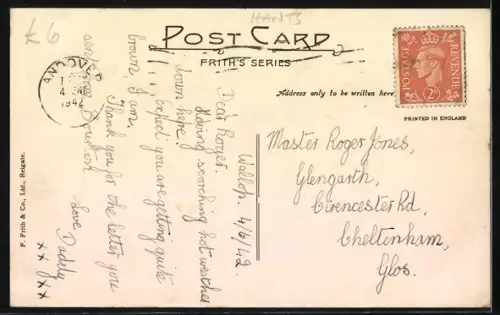 £6
HANTS
POST CARD
FRITH'S SERIES
Address only to be written here
POSTAGE
REVENUE
2D
PRINTED IN ENGLAND
ANDOVER
4
1942
Wallop. 4/6/42.
Dear Roger.
Having scorching hot weather
down here.
Expect you are getting quite
brown, I am.
Thank you for the letter you
sent
Love Daddy
xx xx
Master Roger Jones,
Glengarth,
Cirencester Rd,
Cheltenham,
Glos.
F. Frith & Co., Ltd., Reigate.